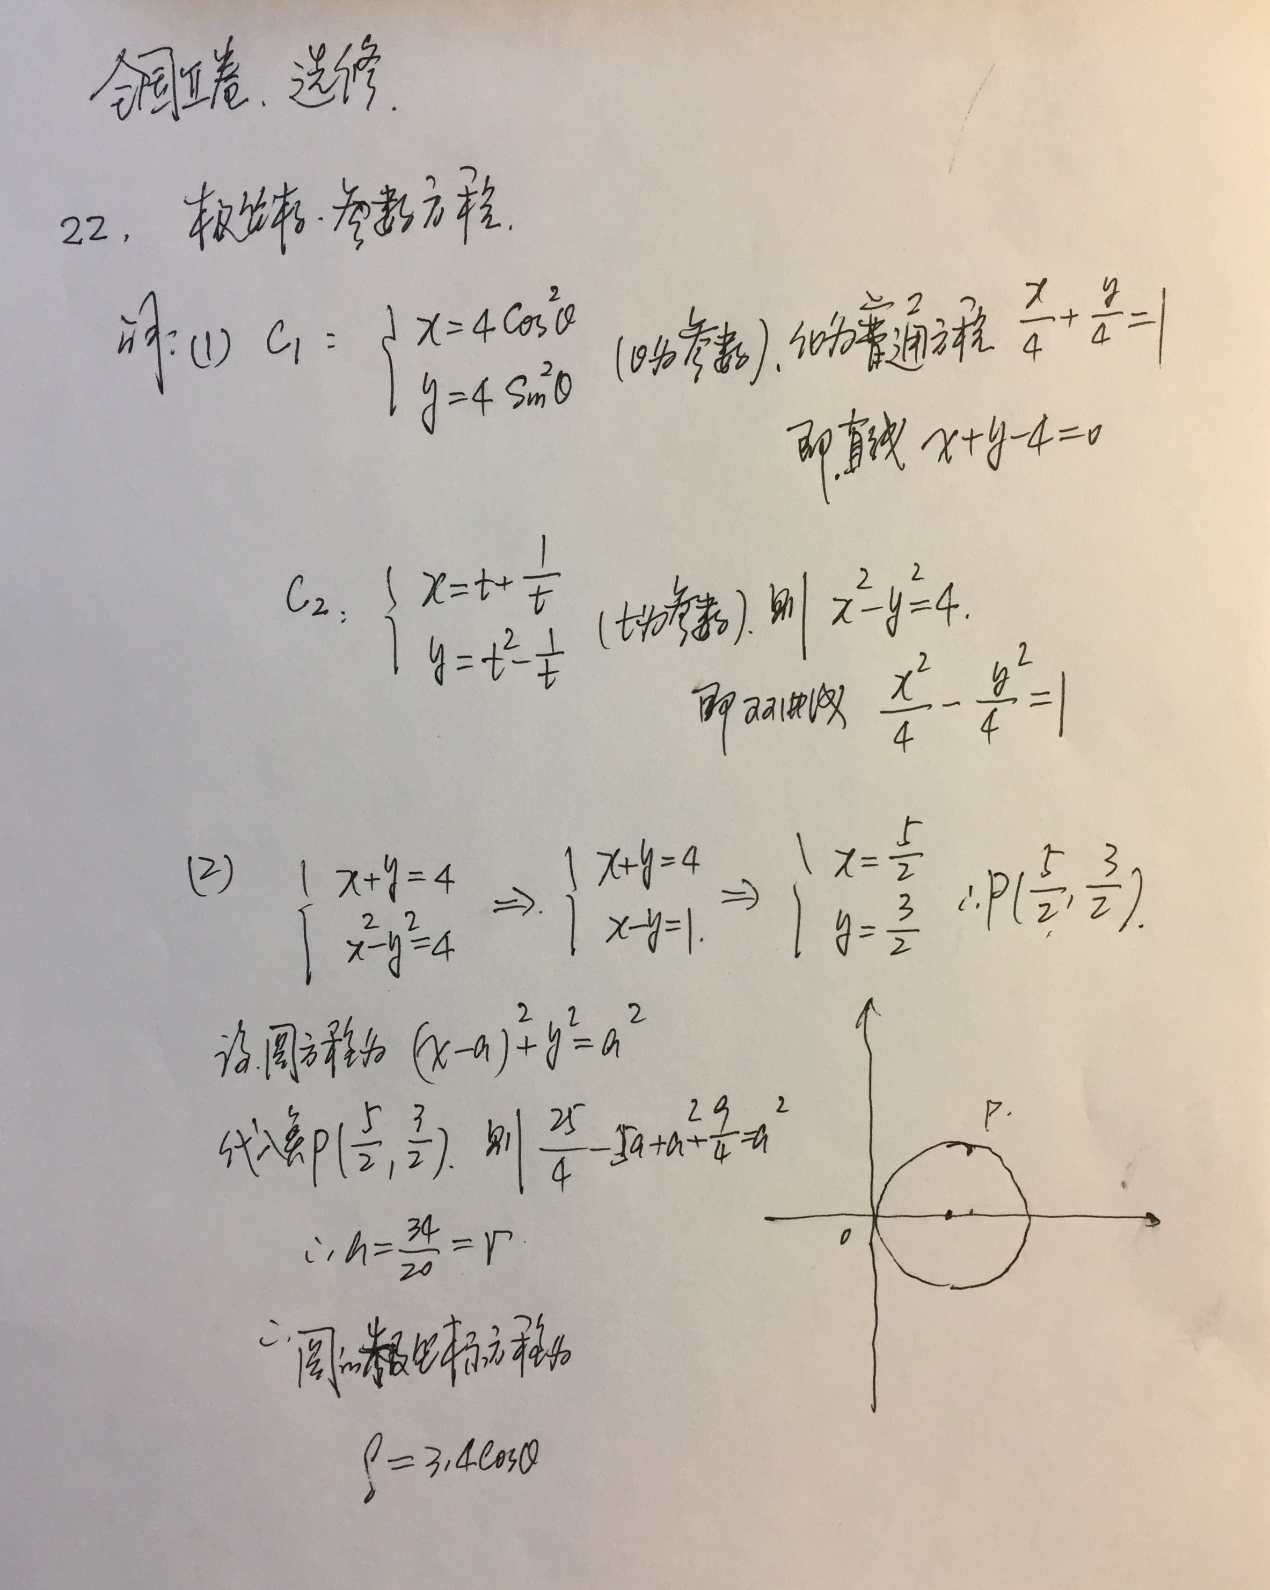 全国II卷. 选修.
22. 极坐标·参数方程.
解:(1) C₁: { x=4cos²θ y=4sin²θ (θ为参数). 化为普通方程 x/4+y/4=1
即直线 x+y-4=0
C₂: { x=t+1/t y=t²-1/t (t为参数). 则 x²-y²=4.
即双曲线 x²/4-y²/4=1
(2) { x+y=4 x²-y²=4 ⇒ { x+y=4 x-y=1. ⇒ { x=5/2 y=3/2 ∴P(5/2, 3/2).
设圆方程为 (x-a)²+y²=a²
代入点P(5/2, 3/2). 则 25/4-5a+a²+9/4=a²
∴a=34/20=r
∴圆的极坐标方程为
ρ=3.4cosθ
P.
0